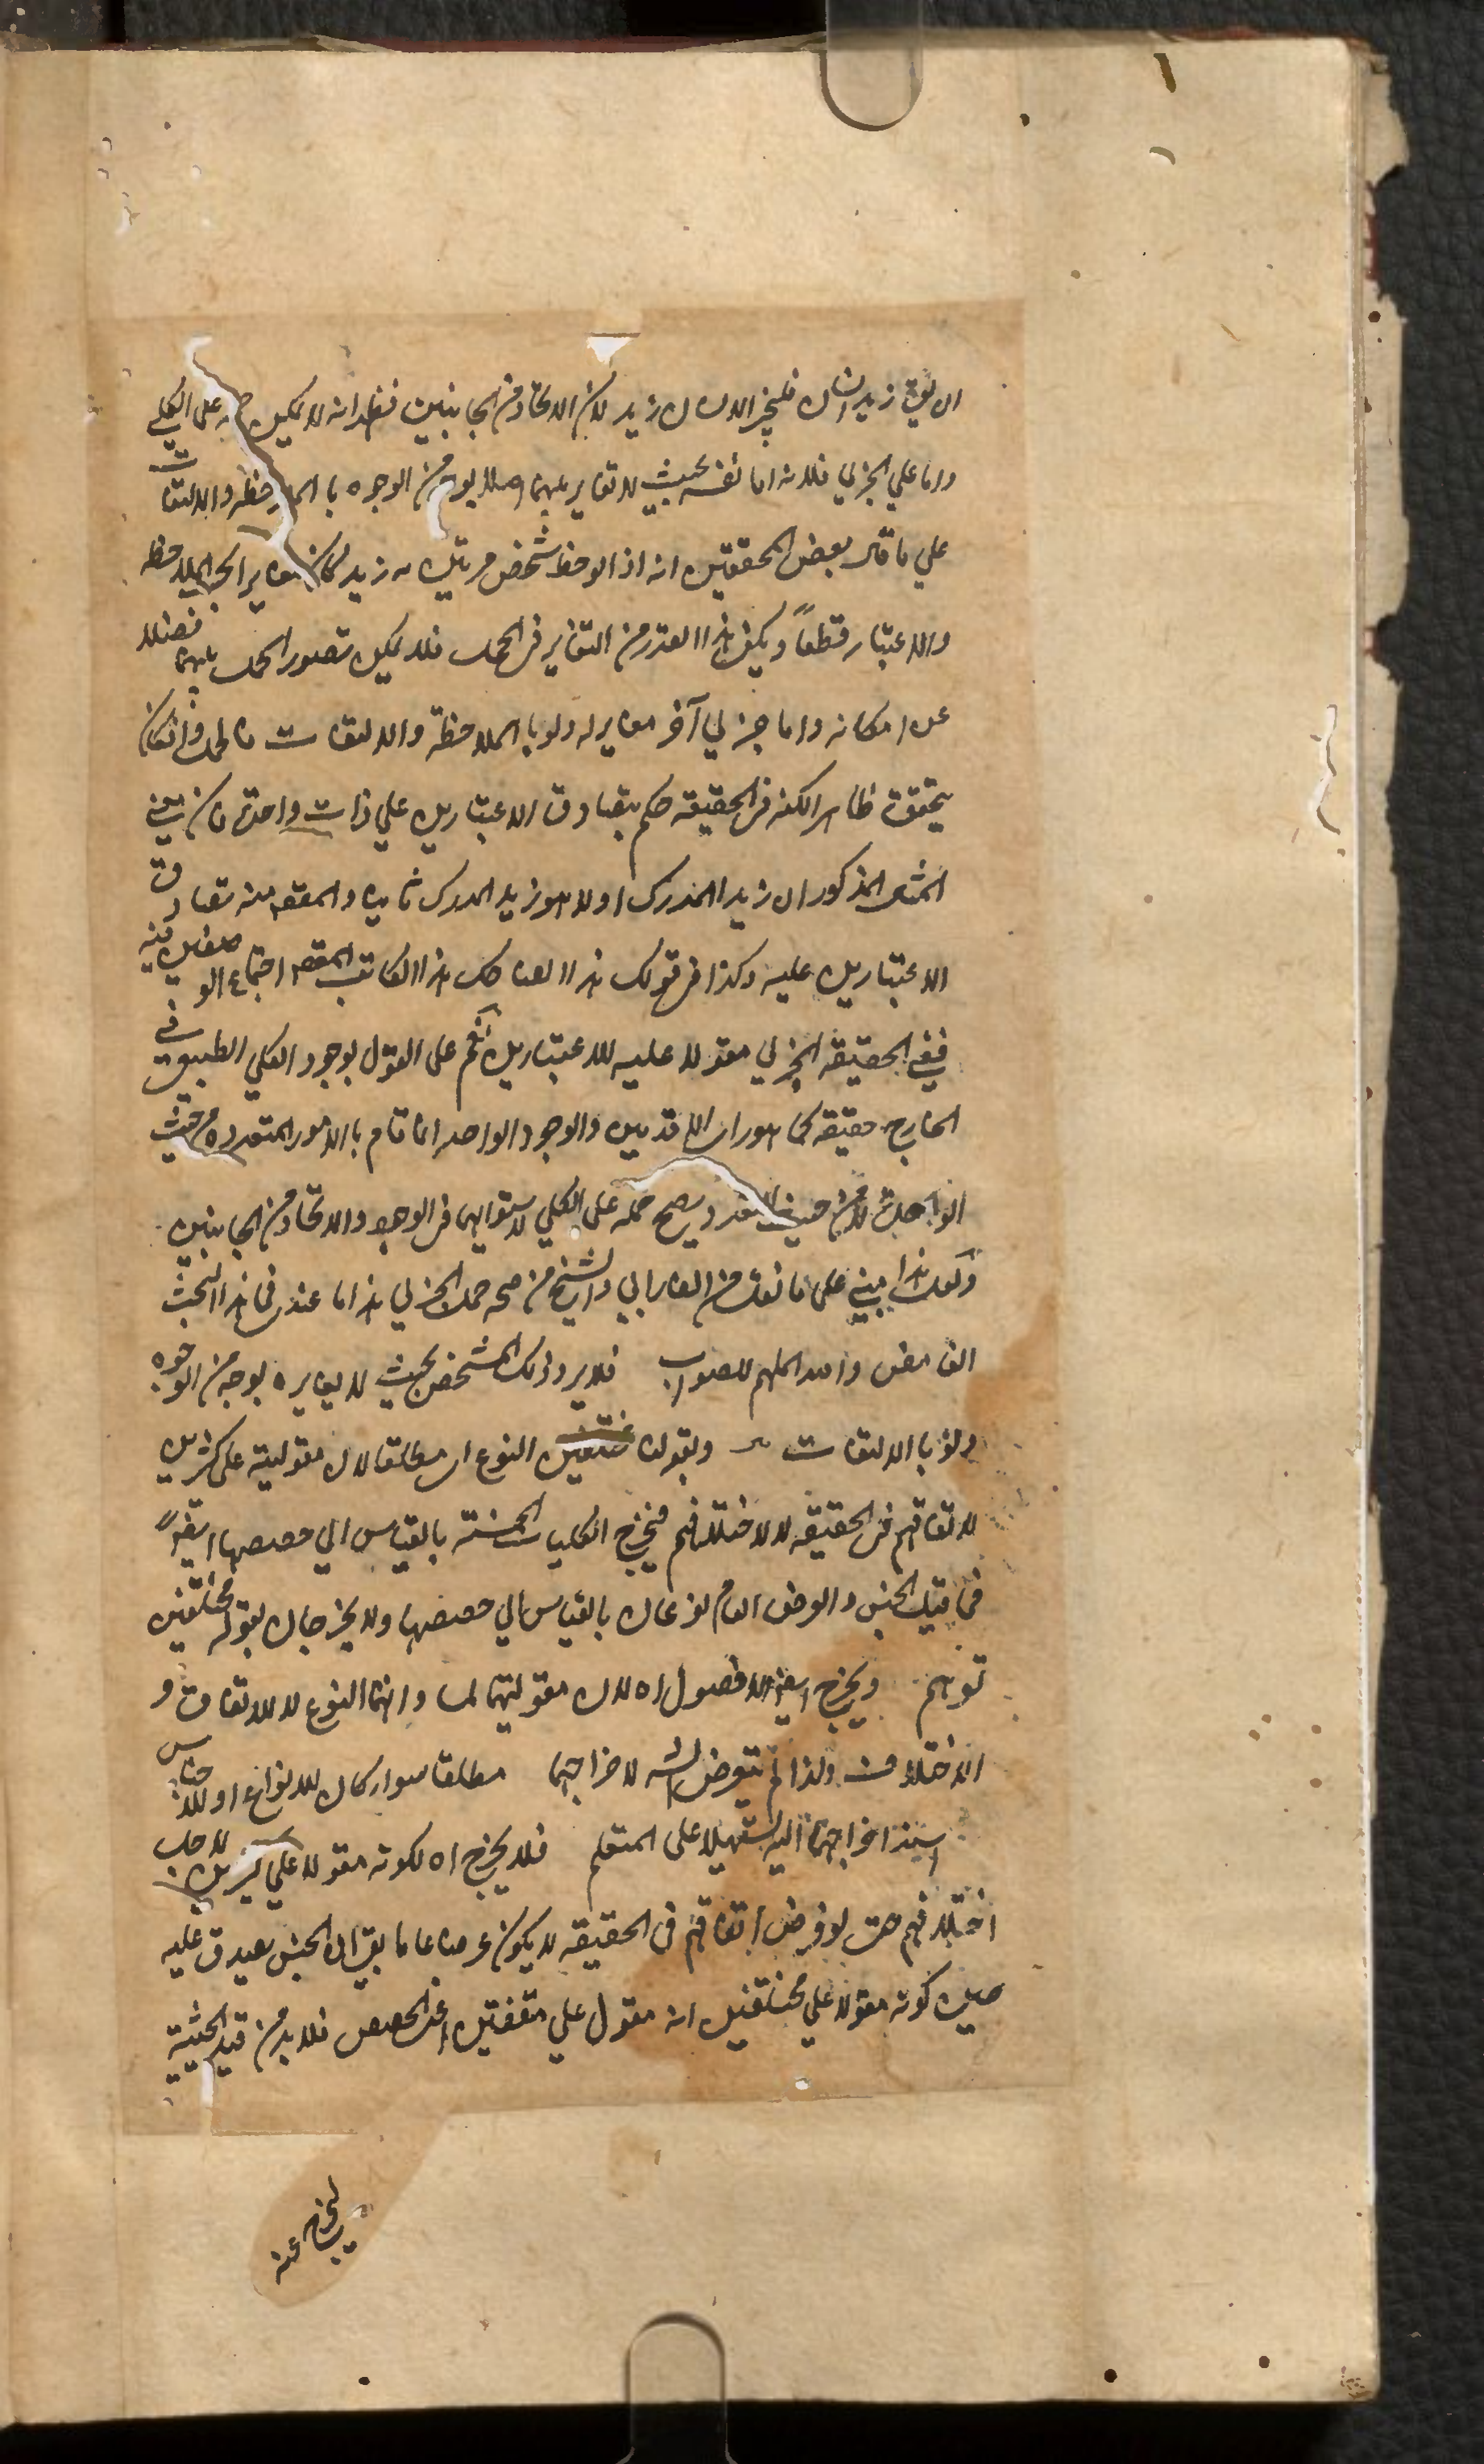 ان يقال زيد انسان فليجز الانسان زيد لان الاتحاد من الجانبين فظهر انه لا يمكن حمله على الكلي
واما علي الجزئي فلانه اما نفسه بحيث لا تغاير بينهما اصلا بوجه من الوجوه بالملاحظه والالتفات
علي ما قال بعض المحققين انه اذا لوحظ شخص مرتين زيد كان مغايرا بحسب الملاحظه
والاعتبار قطعاً ويكفي هذا القدر من التغاير في الحمل فلا يمكن تصور الحمل بينهما فضلا
عن امكانه واما جزئي آخر مغاير له ولو بالملاحظة والالتفات فالحمل وان كان
يتحقق ظاهرا لكنه في الحقيقة حكم بتصادق الاعتبارين علي ذات واحدة فان معنى
المثال المذكور ان زيد المدرك اولا هو زيد المدرك ثانيا والمقصود منه تصادق
الاعتبارين عليه وكذا في قولك هذا الضاحك هذا الكاتب المقصود اجتماع الوصفين فيه
ففي الحقيقه الجزئي مقولا عليه للاعتبارين نعم على القول بوجود الكلي الطبيعي في
الخارج حقيقه كما هو راي الاقدمين والوجود الواحد انما قام بالامور المتعدده من حيث
الواحدة لا من حيث التعدد يصح حمله على الكلي لاستوائهما في الوجود والاتحاد من الجانبين
ولعل هذا مبني على ما نقل من الفارابي والشيخ من صحه حمل الجزئي هذا ما عندي في هذا المبحث
الغامض والله الملهم للصواب فلا يرد ذلك الشخص بحيث لا يغايره بوجه من الوجوه
ولو بالالتفات وبقوله متفقين النوع اي مطلقا لان مقوليته على كثيرين
لاتفاقهم في الحقيقه لا لاختلافهم فيخرج الكليات الخمسة بالقياس الي حصصها ايضاً
فما قيل الجنس والعرض العام نوعان بالقياس الي حصصها ولا يخرجان بقوله مختلفين
توهم ويخرج ايضا الفصول لان مقوليتهما لما وانهما النوع لا للاتفاق و
الاختلاف ولذا لم يتعرض لاخراجهما مطلقا سواء كان للانواع او للاجناس
اسند اخراجهما اليه تسهيلا على المتعلم فلا يخرج لكونه مقولا علي كثيرين لاجل
اختلافهم حتى لو فرض اتفاقهم في الحقيقه لا يكون عرضا عاما بقي ان الجنس يصدق عليه
حين كونه مقولا علي مختلفين انه مقول علي متفقين اعني الحصص فلا بد من قيد الحيثية
ليخرج عنه